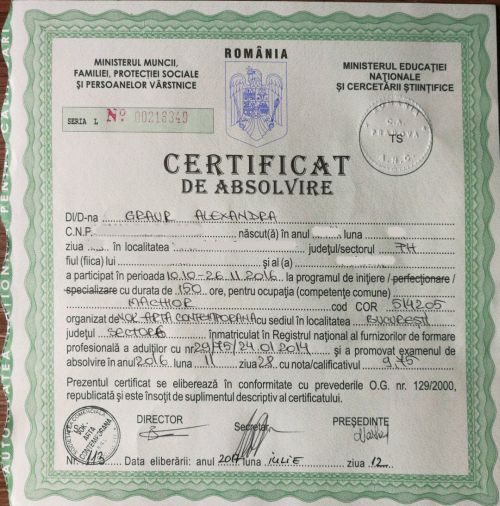 ROMÂNIA
MINISTERUL MUNCII,
FAMILIEI, PROTECȚIEI SOCIALE
ȘI PERSOANELOR VÂRSTNICE
MINISTERUL EDUCAȚIEI
NAȚIONALE
ȘI CERCETĂRII ȘTIINȚIFICE
SERIA L Nº 00218349
TS
CERTIFICAT
DE ABSOLVIRE
Dl/D-na GRAUR ALEXANDRA
C.N.P. născut(ă) în anul luna
ziua în localitatea județul/sectorul PH
fiul (fiica) lui și al (a)
a participat în perioada 10.10-26.11.2016 la programul de inițiere / perfecționare /
specializare cu durata de 150 ore, pentru ocupația (competențe comune)
MACHIOR cod COR 514205
organizat de VOK ARTA CONTEMPORANA cu sediul în localitatea BUCUREȘTI
județul SECTOR 6 înmatriculat în Registrul național al furnizorilor de formare
profesională a adulților cu nr 29/75/24.01.2014 și a promovat examenul
absolvire în anul 2016 luna 11 ziua 28 cu nota/calificativul 9,75
Prezentul certificat se eliberează în conformitate cu prevederile O.G. nr. 129/2000,
republicată și este însoțit de suplimentul descriptiv al certificatului.
DIRECTOR
Secretar
PREȘEDINTE
VOK
ARTA
CONTEMPORANA
Nr. 113 Data eliberării: anul 2017 luna IULIE ziua 12